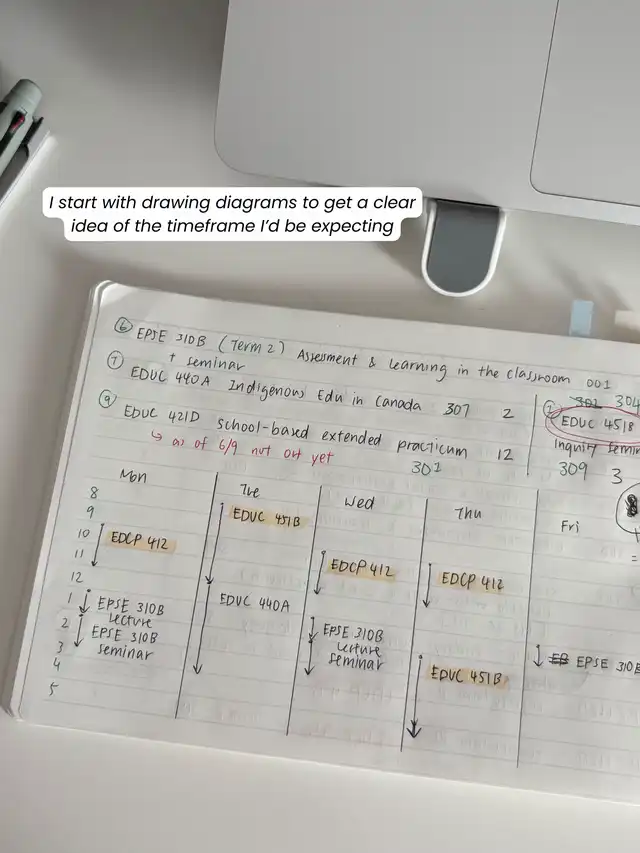 I start with drawing diagrams to get a clear
idea of the timeframe I'd be expecting
⑥ EPSE 310B (Term 2) Assessment & Learning in the classroom 001
+ seminar
⑦ EDUC 440A Indigenous Edu in Canada 307 2
⑨ EDUC 421D school-based extended practicum 12
↳ as of 6/9 not out yet
301
301 304
EDUC 451B
Inquiry Semin
309 3
Mon
Tue
Wed
Thu
Fri
8
9
10
11
12
1
2
3
4
5
EDCP 412
EPSE 310B
lecture
EPSE 310B
seminar
EDUC 451B
EDUC 440A
EDCP 412
EPSE 310B
lecture
seminar
EDCP 412
EDUC 451B
EPSE 310B